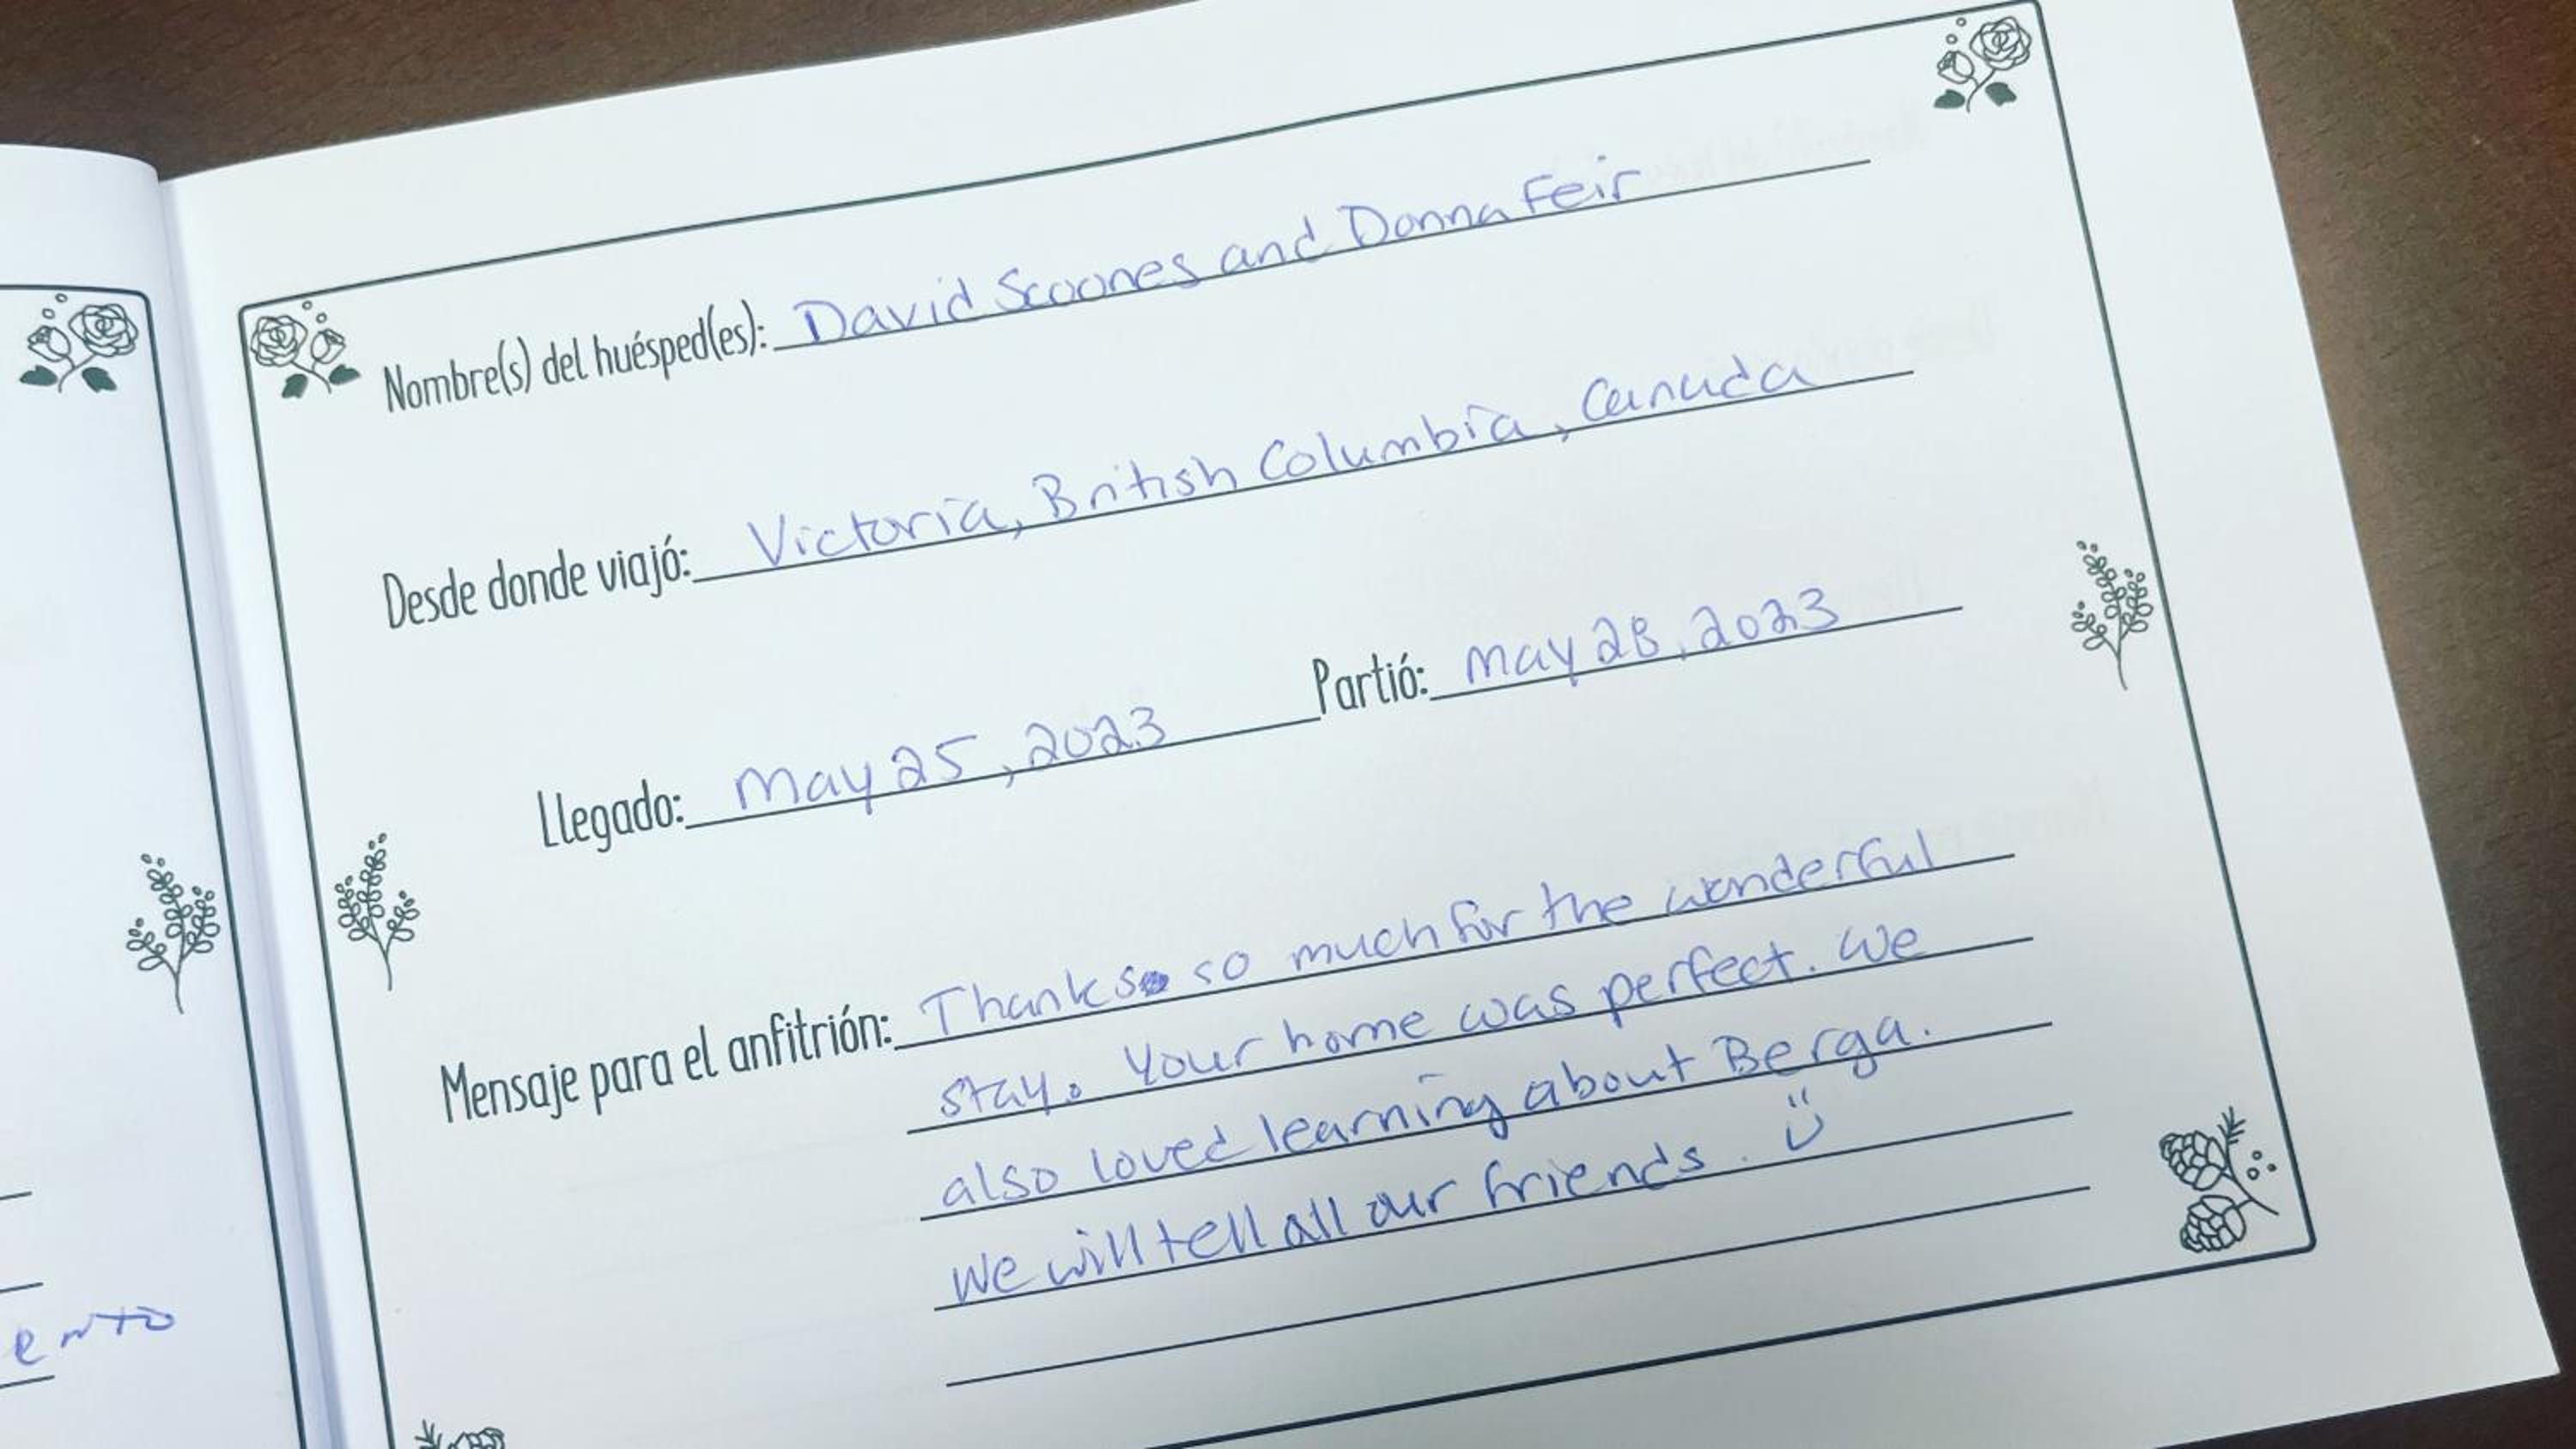 Nombre(s) del huésped(es): David Scoones and Donna Feir
Desde donde viajó: Victoria, British Columbia, Canada
Llegado: May 25, 2023 Partió: May 28, 2023
Mensaje para el anfitrión: Thanks so much for the wonderful
stay. Your home was perfect. We
also loved learning about Berga.
We will tell all our friends. ü
ento